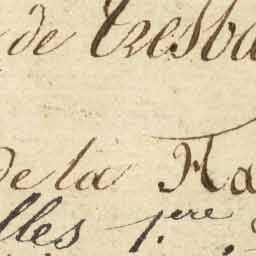 de tresba
de la Ha
lles 1.ere